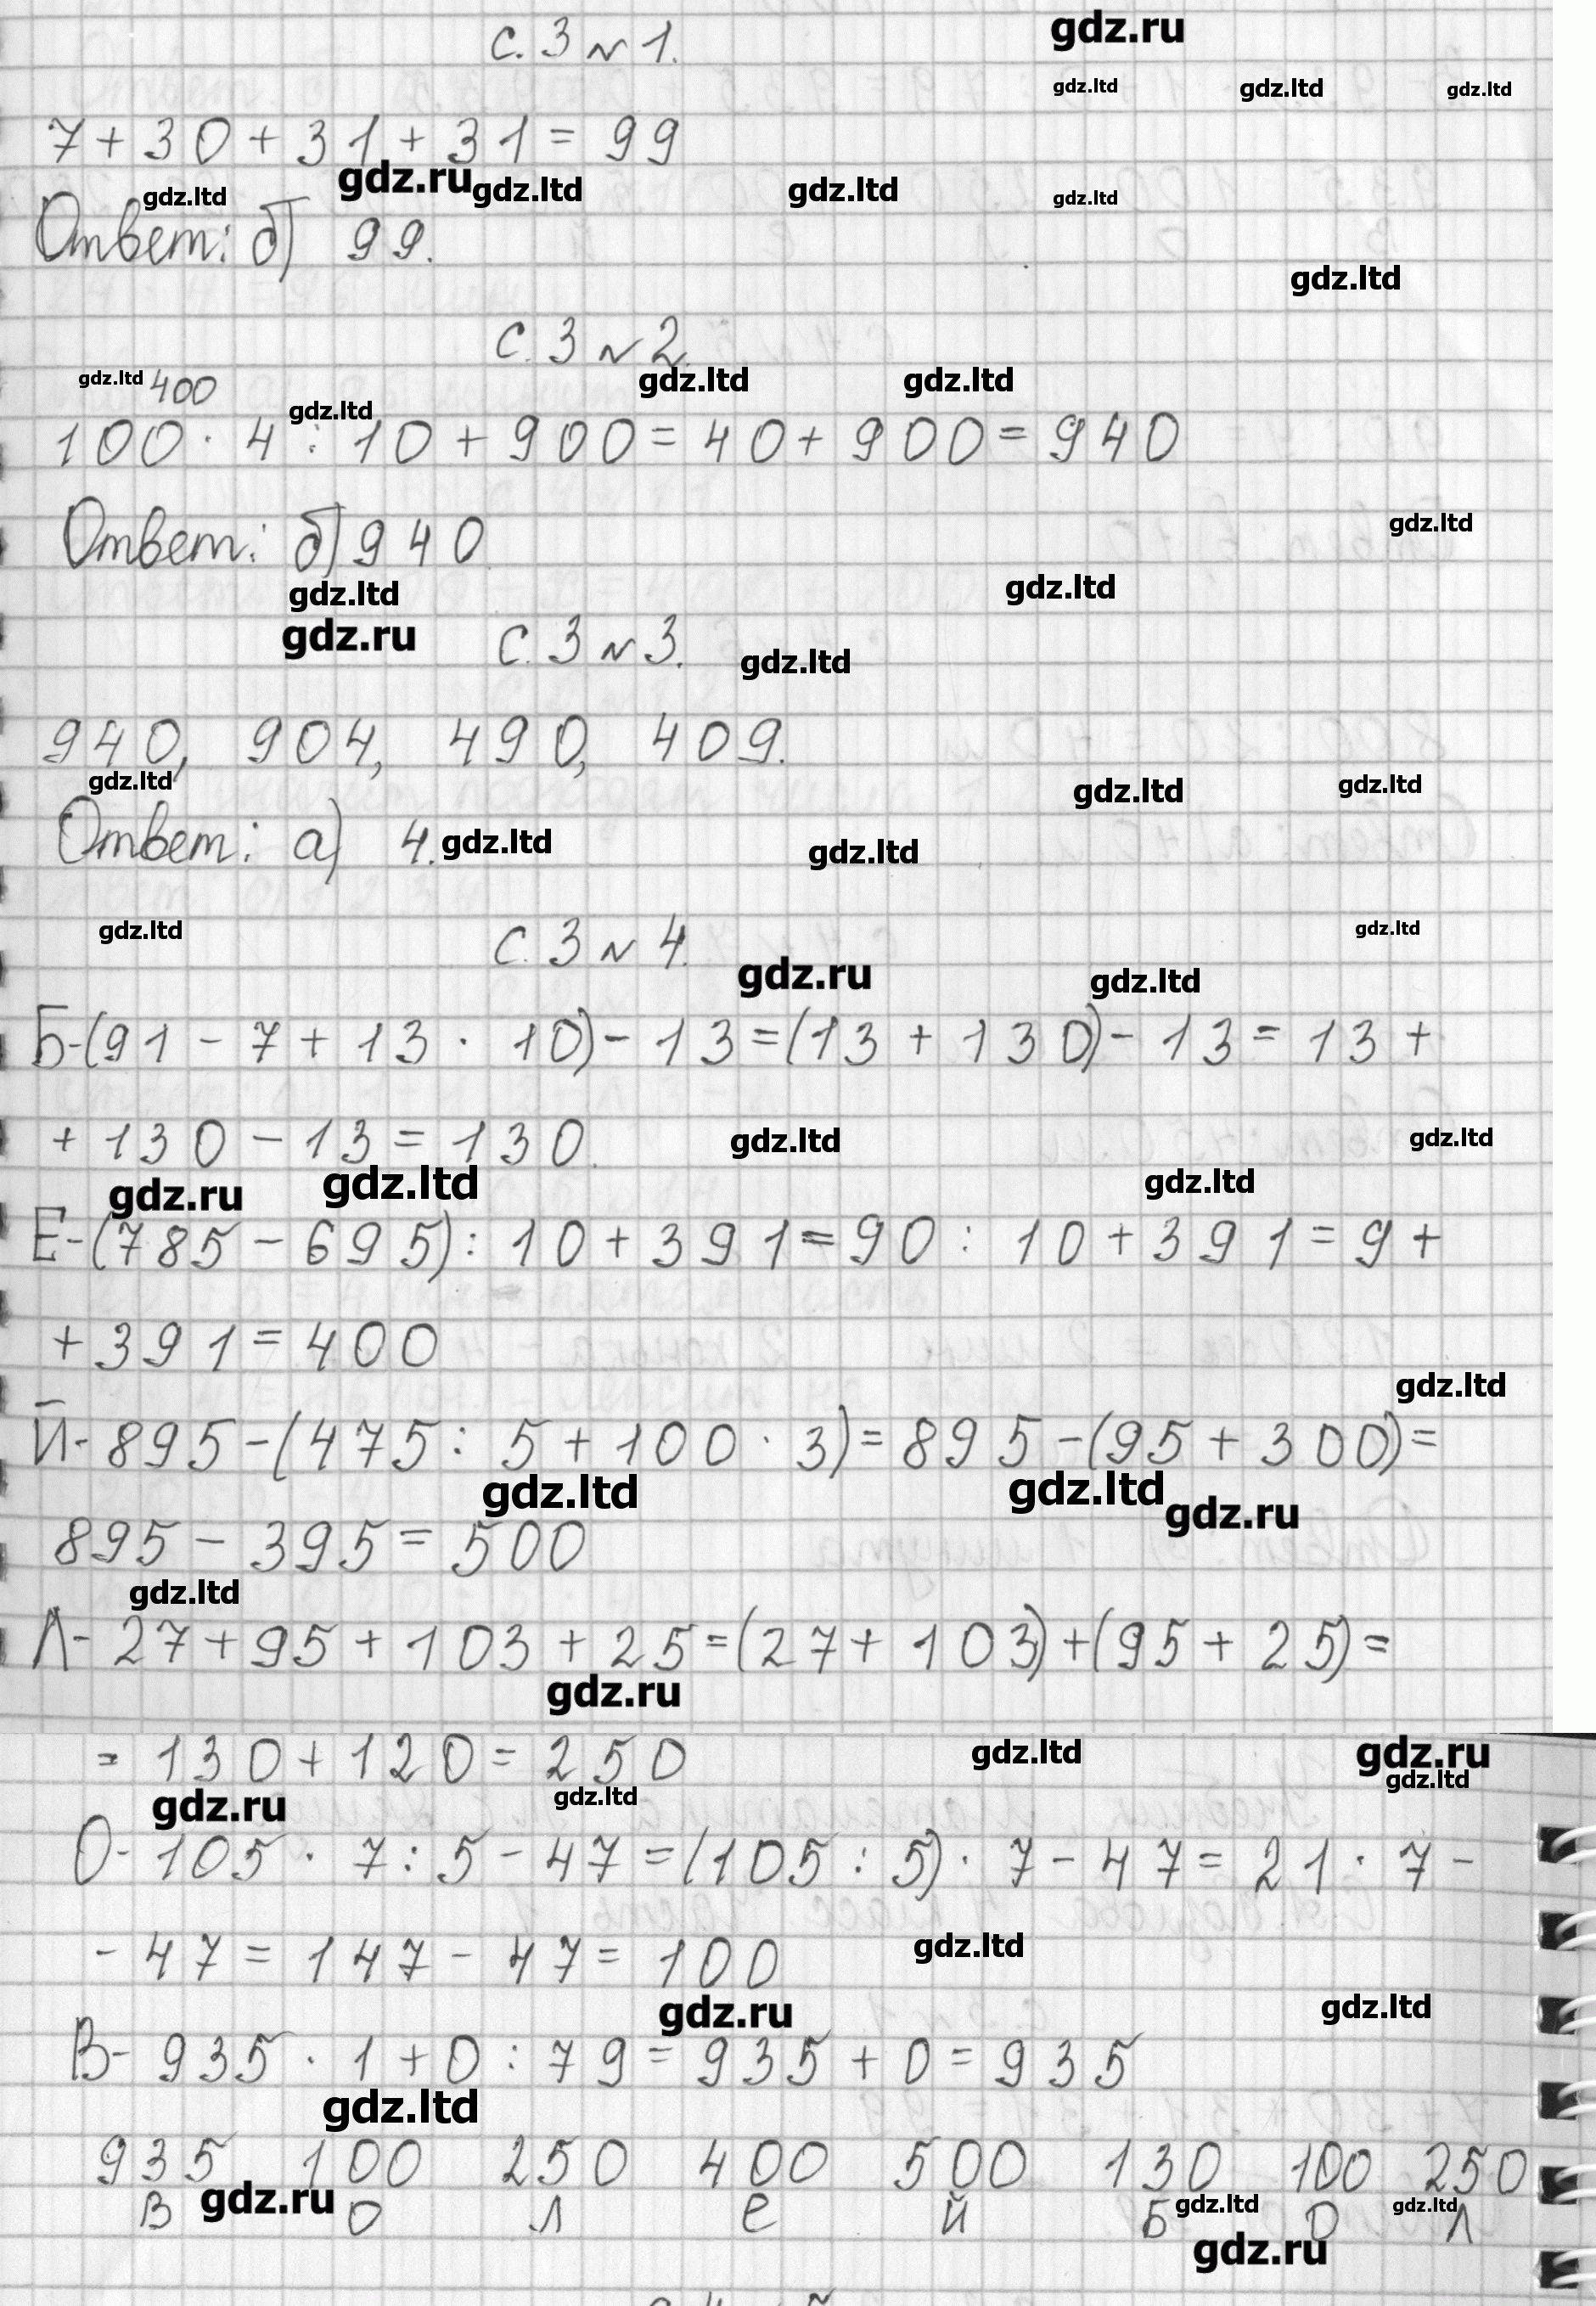 с. 3 № 1. gdz.ru
gdz.ltd gdz.ltd gdz.ltd
7 + 30 + 31 + 31 = 99
gdz.ltd gdz.ru gdz.ltd gdz.ltd gdz.ltd
Ответ: б) 99.
gdz.ltd
с. 3 № 2.
gdz.ltd 400 gdz.ltd gdz.ltd gdz.ltd
100 · 4 : 10 + 900 = 40 + 900 = 940
Ответ: б) 940 gdz.ltd
gdz.ltd gdz.ltd
gdz.ru с. 3 № 3. gdz.ltd
940, 904, 490, 409.
gdz.ltd gdz.ltd gdz.ltd
Ответ: а) 4. gdz.ltd gdz.ltd
gdz.ltd с. 3 № 4. gdz.ltd
gdz.ru gdz.ltd
Б-(91 - 7 + 13 · 10) - 13 = (13 + 130) - 13 = 13 +
+ 130 - 13 = 130. gdz.ltd gdz.ltd
gdz.ru gdz.ltd gdz.ltd
Е-(785 - 695) : 10 + 391 = 90 : 10 + 391 = 9 +
+ 391 = 400
gdz.ltd
Й- 895 - (475 : 5 + 100 · 3) = 895 - (95 + 300) =
gdz.ltd gdz.ltd gdz.ru
895 - 395 = 500
gdz.ltd
Л- 27 + 95 + 103 + 25 = (27 + 103) + (95 + 25) =
gdz.ru
= 130 + 120 = 250 gdz.ltd gdz.ru
gdz.ru gdz.ltd gdz.ltd
О- 105 · 7 : 5 - 47 = (105 : 5) · 7 - 47 = 21 · 7 -
- 47 = 147 - 47 = 100 gdz.ltd
gdz.ru gdz.ltd
В- 935 · 1 + 0 : 79 = 935 + 0 = 935
gdz.ltd
935 100 250 400 500 130 100 250
В gdz.ru О Л е й Б gdz.ltd О gdz.ltd Л
gdz.ru